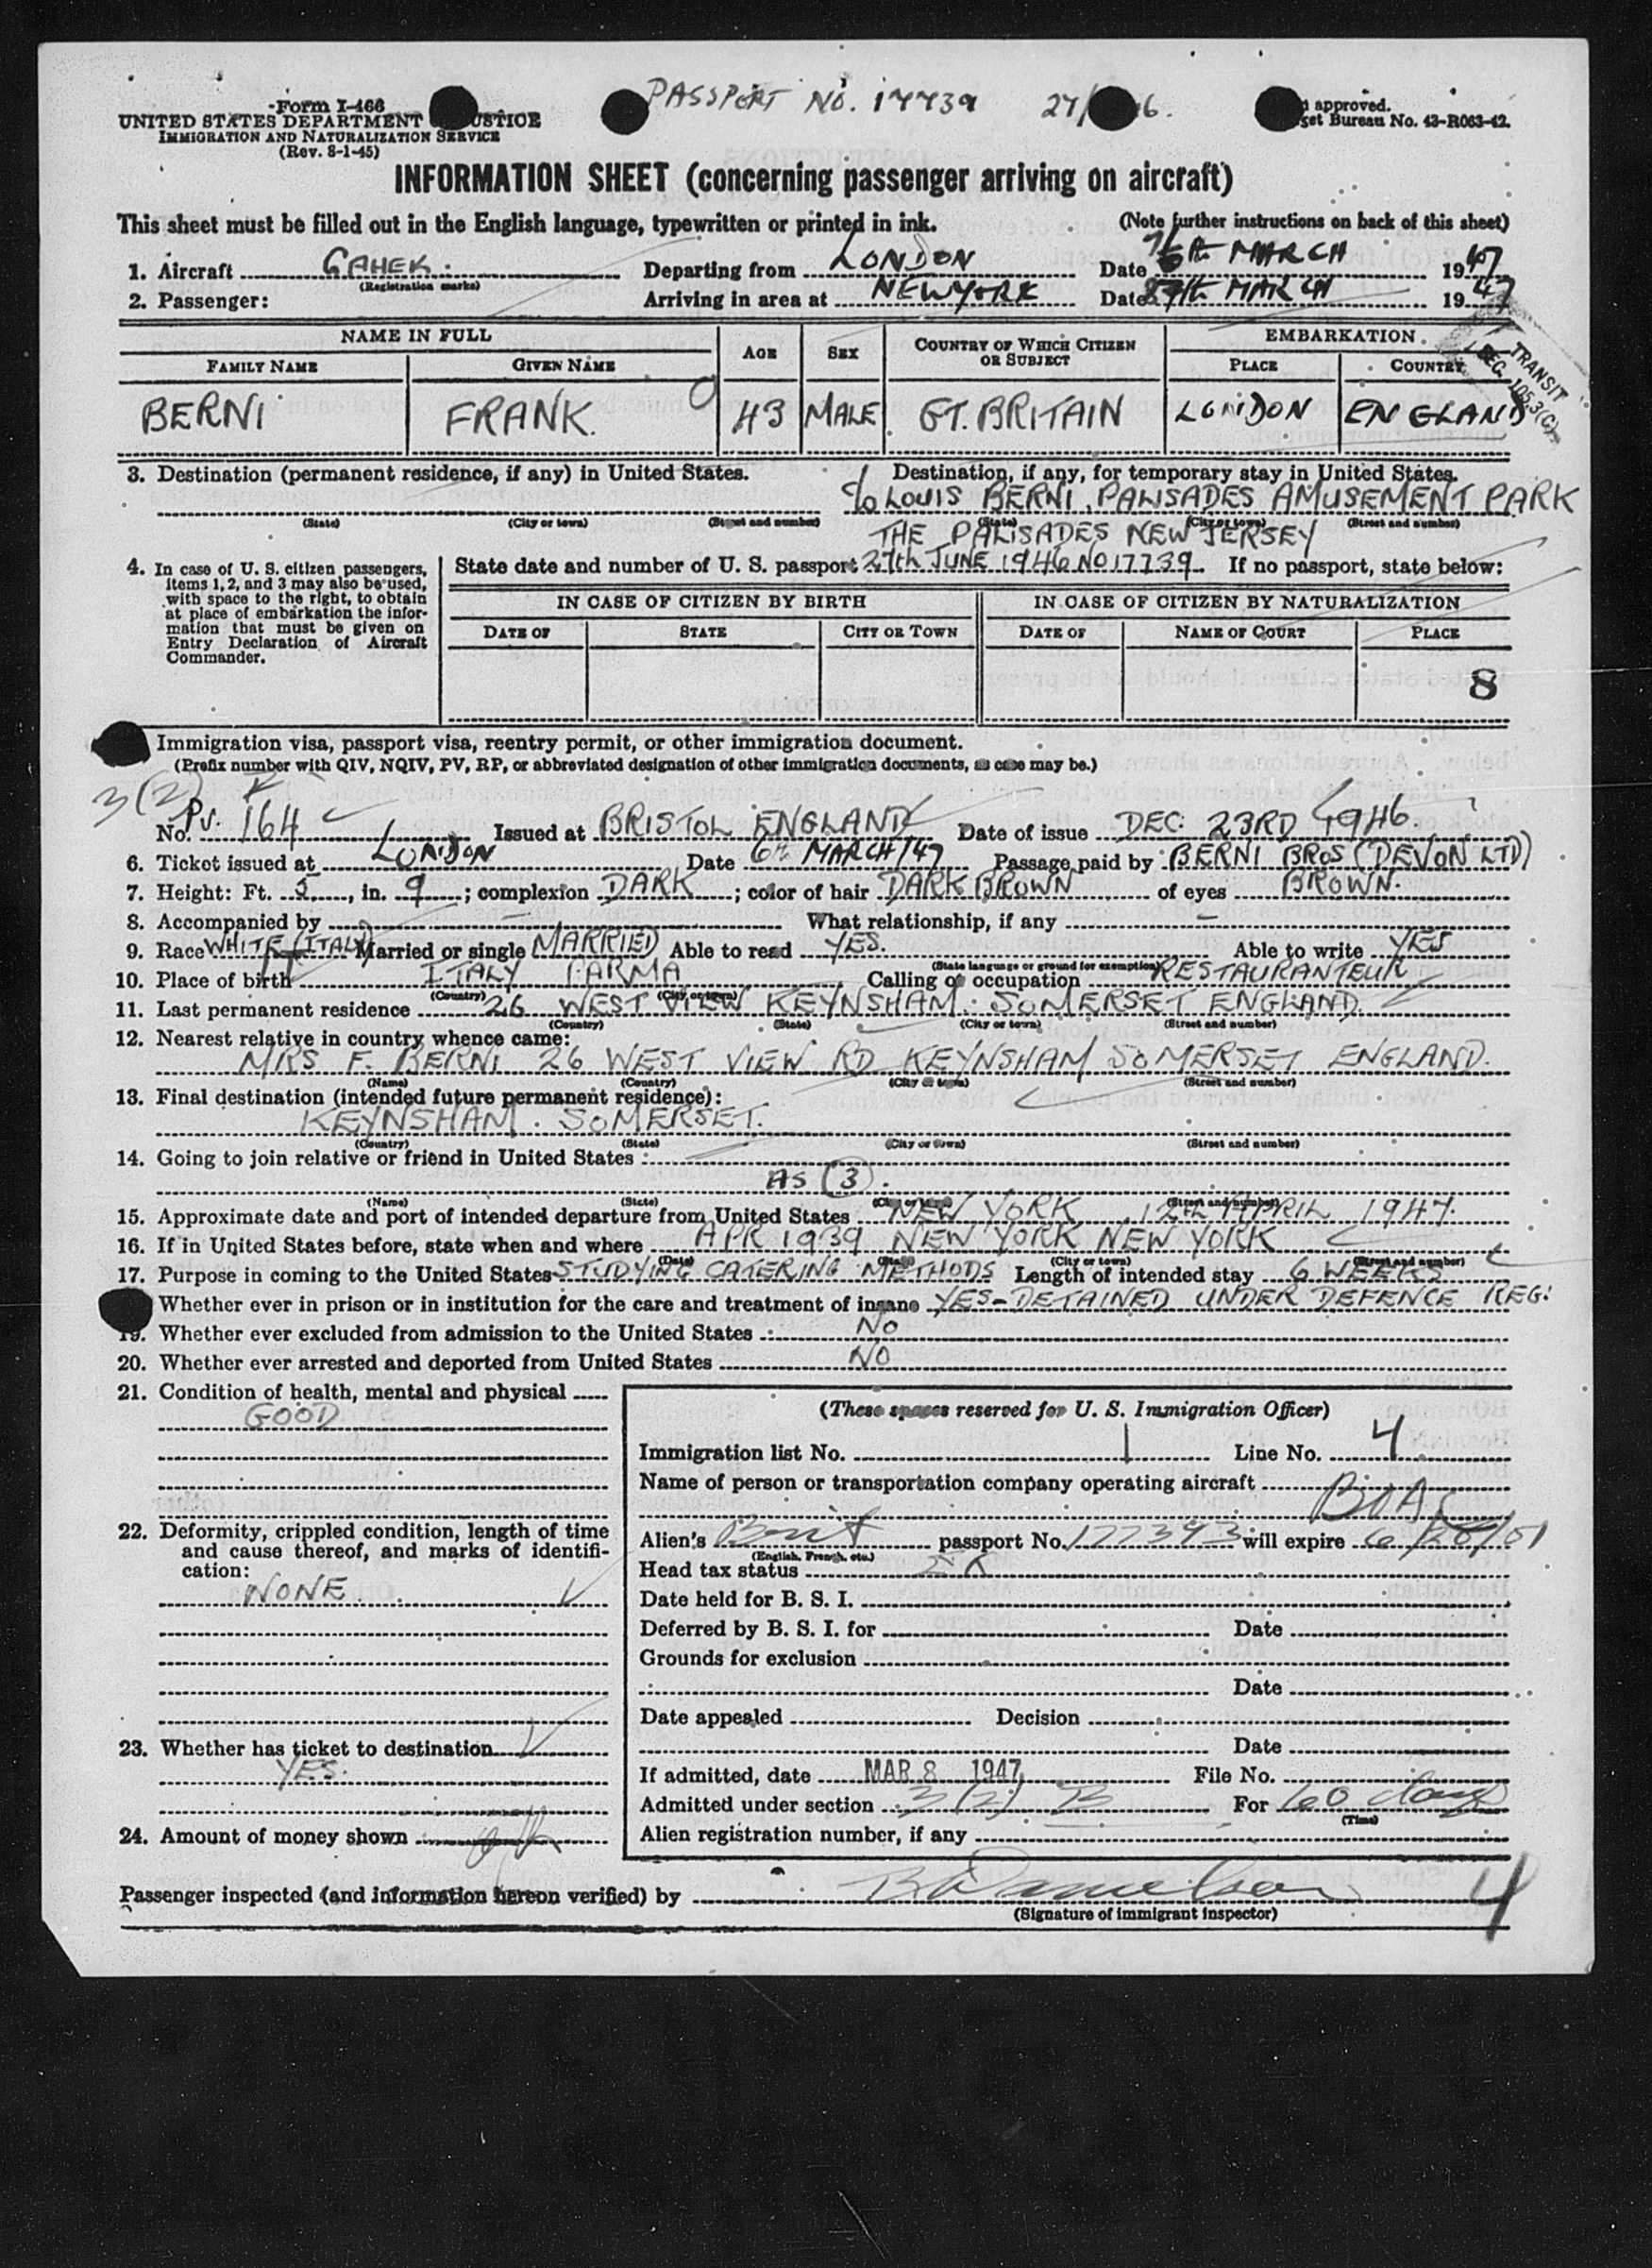 PASSPORT NO. 17739 27/ 6.
Form I-466
UNITED STATES DEPARTMENT USTICE
IMMIGRATION AND NATURALIZATION SERVICE
(Rev. 8-1-45)
approved.
get Bureau No. 43-R063-42.
INFORMATION SHEET (concerning passenger arriving on aircraft)
This sheet must be filled out in the English language, typewritten or printed in ink. (Note further instructions on back of this sheet)
1. Aircraft GAHEK. Departing from LONDON Date MARCH 1947
(Registration marks)
2. Passenger: Arriving in area at NEW YORK Date MARCH 1947
NAME IN FULL AGE SEX COUNTRY OF WHICH CITIZEN OR SUBJECT EMBARKATION
FAMILY NAME GIVEN NAME PLACE COUNTRY
TRANSIT
SEC. 105.3(C)
BERNI FRANK. 43 MALE GT. BRITAIN LONDON ENGLAND
3. Destination (permanent residence, if any) in United States. Destination, if any, for temporary stay in United States.
c/o LOUIS BERNI, PALISADES AMUSEMENT PARK
(State) (City or town) (Street and number) (State) (City or town) (Street and number)
THE PALISADES NEW JERSEY
4. In case of U. S. citizen passengers, items 1, 2, and 3 may also be used, with space to the right, to obtain at place of embarkation the information that must be given on Entry Declaration of Aircraft Commander.
State date and number of U. S. passport 27th JUNE 1946 NO 17739 If no passport, state below:
IN CASE OF CITIZEN BY BIRTH IN CASE OF CITIZEN BY NATURALIZATION
DATE OF STATE CITY OR TOWN DATE OF NAME OF COURT PLACE
8
Immigration visa, passport visa, reentry permit, or other immigration document.
(Prefix number with QIV, NQIV, PV, RP, or abbreviated designation of other immigration documents, as case may be.)
3(2)
No. PV. 164 Issued at BRISTOL ENGLAND Date of issue DEC 23RD 1946.
6. Ticket issued at LONDON Date 6th MARCH/47 Passage paid by BERNI BROS (DEVON LTD)
7. Height: Ft. 5, in. 9; complexion DARK; color of hair DARK BROWN of eyes BROWN.
8. Accompanied by — What relationship, if any —
9. Race WHITE (ITALY) Married or single MARRIED Able to read YES. Able to write YES
(State language or ground for exemption)
10. Place of birth ITALY PARMA Calling or occupation RESTAURANTEUR
(Country) (City or town)
11. Last permanent residence 26 WEST VIEW KEYNSHAM. SOMERSET ENGLAND.
(Country) (State) (City or town) (Street and number)
12. Nearest relative in country whence came:
MRS F. BERNI 26 WEST VIEW RD KEYNSHAM SOMERSET ENGLAND.
(Name) (Country) (City or town) (Street and number)
13. Final destination (intended future permanent residence):
KEYNSHAM. SOMERSET.
(Country) (State) (City or town) (Street and number)
14. Going to join relative or friend in United States:
AS (3).
(Name) (State) (City or town) (Street and number)
15. Approximate date and port of intended departure from United States NEW YORK 12th APRIL 1947.
16. If in United States before, state when and where APR 1939 NEW YORK NEW YORK
(Date) (State) (City or town) (Street and number)
17. Purpose in coming to the United States STUDYING CATERING METHODS Length of intended stay 6 WEEKS
Whether ever in prison or in institution for the care and treatment of insane YES - DETAINED UNDER DEFENCE REG:
19. Whether ever excluded from admission to the United States NO
20. Whether ever arrested and deported from United States NO
21. Condition of health, mental and physical
GOOD
22. Deformity, crippled condition, length of time and cause thereof, and marks of identification:
NONE
23. Whether has ticket to destination
YES.
24. Amount of money shown
(These spaces reserved for U. S. Immigration Officer)
Immigration list No. 1 Line No. 4
Name of person or transportation company operating aircraft
BOAC
Alien's Brit passport No. will expire 6
(English, French, etc.)
Head tax status
Date held for B. S. I.
Deferred by B. S. I. for Date
Grounds for exclusion
Date
Date appealed Decision
Date
If admitted, date MAR 8 1947 File No.
Admitted under section 3(2) B For 60 days
(Time)
Alien registration number, if any
Passenger inspected (and information hereon verified) by
(Signature of immigrant inspector)
4